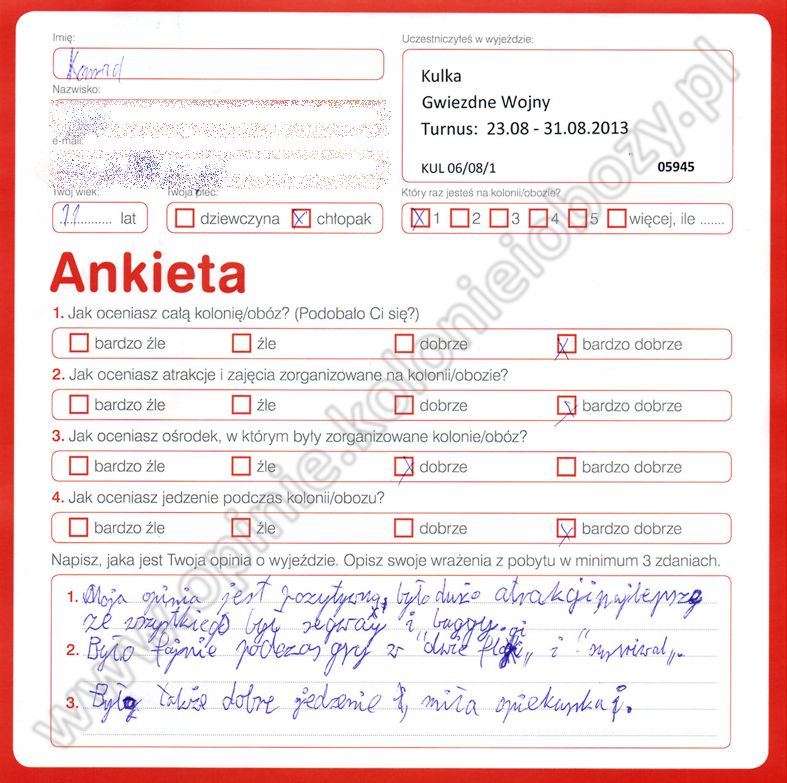 Imię:
Konrad
Uczestniczyłeś w wyjeździe:
Kulka
Gwiezdne Wojny
Turnus: 23.08 - 31.08.2013
KUL 06/08/1 05945
Nazwisko:
e-mail:
Twój wiek:
11 lat
Twoja płeć:
dziewczyna chłopak
Który raz jesteś na kolonii/obozie?
1 2 3 4 5 więcej, ile .......
Ankieta
1. Jak oceniasz całą kolonię/obóz? (Podobało Ci się?)
bardzo źle źle dobrze bardzo dobrze
2. Jak oceniasz atrakcje i zajęcia zorganizowane na kolonii/obozie?
bardzo źle źle dobrze bardzo dobrze
3. Jak oceniasz ośrodek, w którym były zorganizowane kolonie/obóz?
bardzo źle źle dobrze bardzo dobrze
4. Jak oceniasz jedzenie podczas kolonii/obozu?
bardzo źle źle dobrze bardzo dobrze
Napisz, jaka jest Twoja opinia o wyjeździe. Opisz swoje wrażenia z pobytu w minimum 3 zdaniach.
1. Moja opinia jest pozytywna, było dużo atrakcji najlepsze
ze wszystkiego był segway i buggy.
2. Było fajnie podczas gry w "dwie flagi" i "surviwal".
3. Było także dobre jedzenie i miła opiekunka.
www.opinie.kolonieiobozy.pl